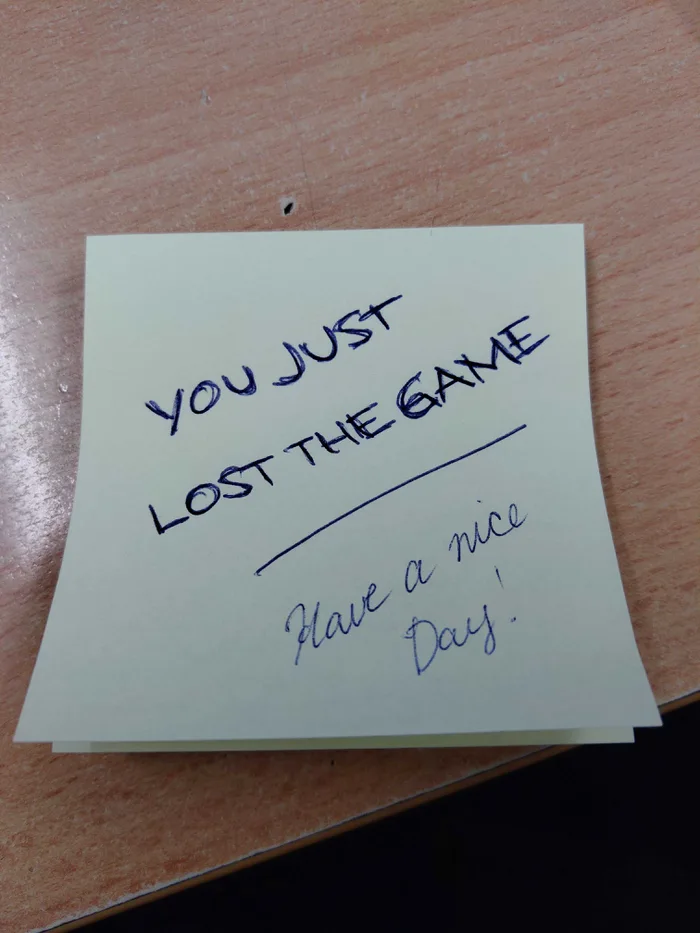 YOU JUST
LOST THE GAME
Have a nice
Day!